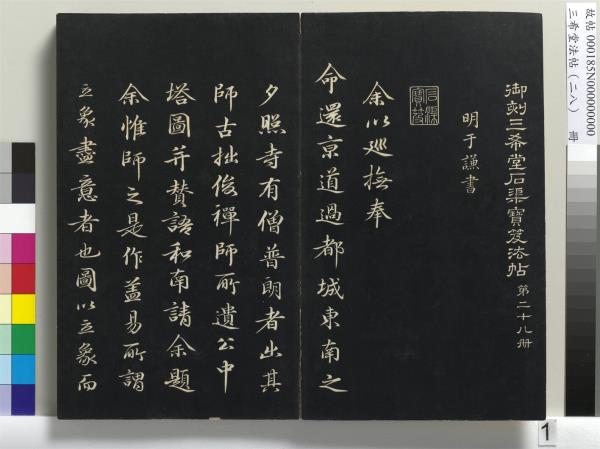 故帖000185N000000000
三希堂法帖（二八） 冊
御刻三希堂石渠寶笈法帖 第二十八冊
明于謙書
石渠寶笈
余以巡撫奉
命還京道過都城東南之
夕照寺有僧普朗者出其
師古拙俊禪師所遺公中
塔圖并贊語和南請余題
余惟師之是作盖易所謂
立象盡意者也圖以立象而
1